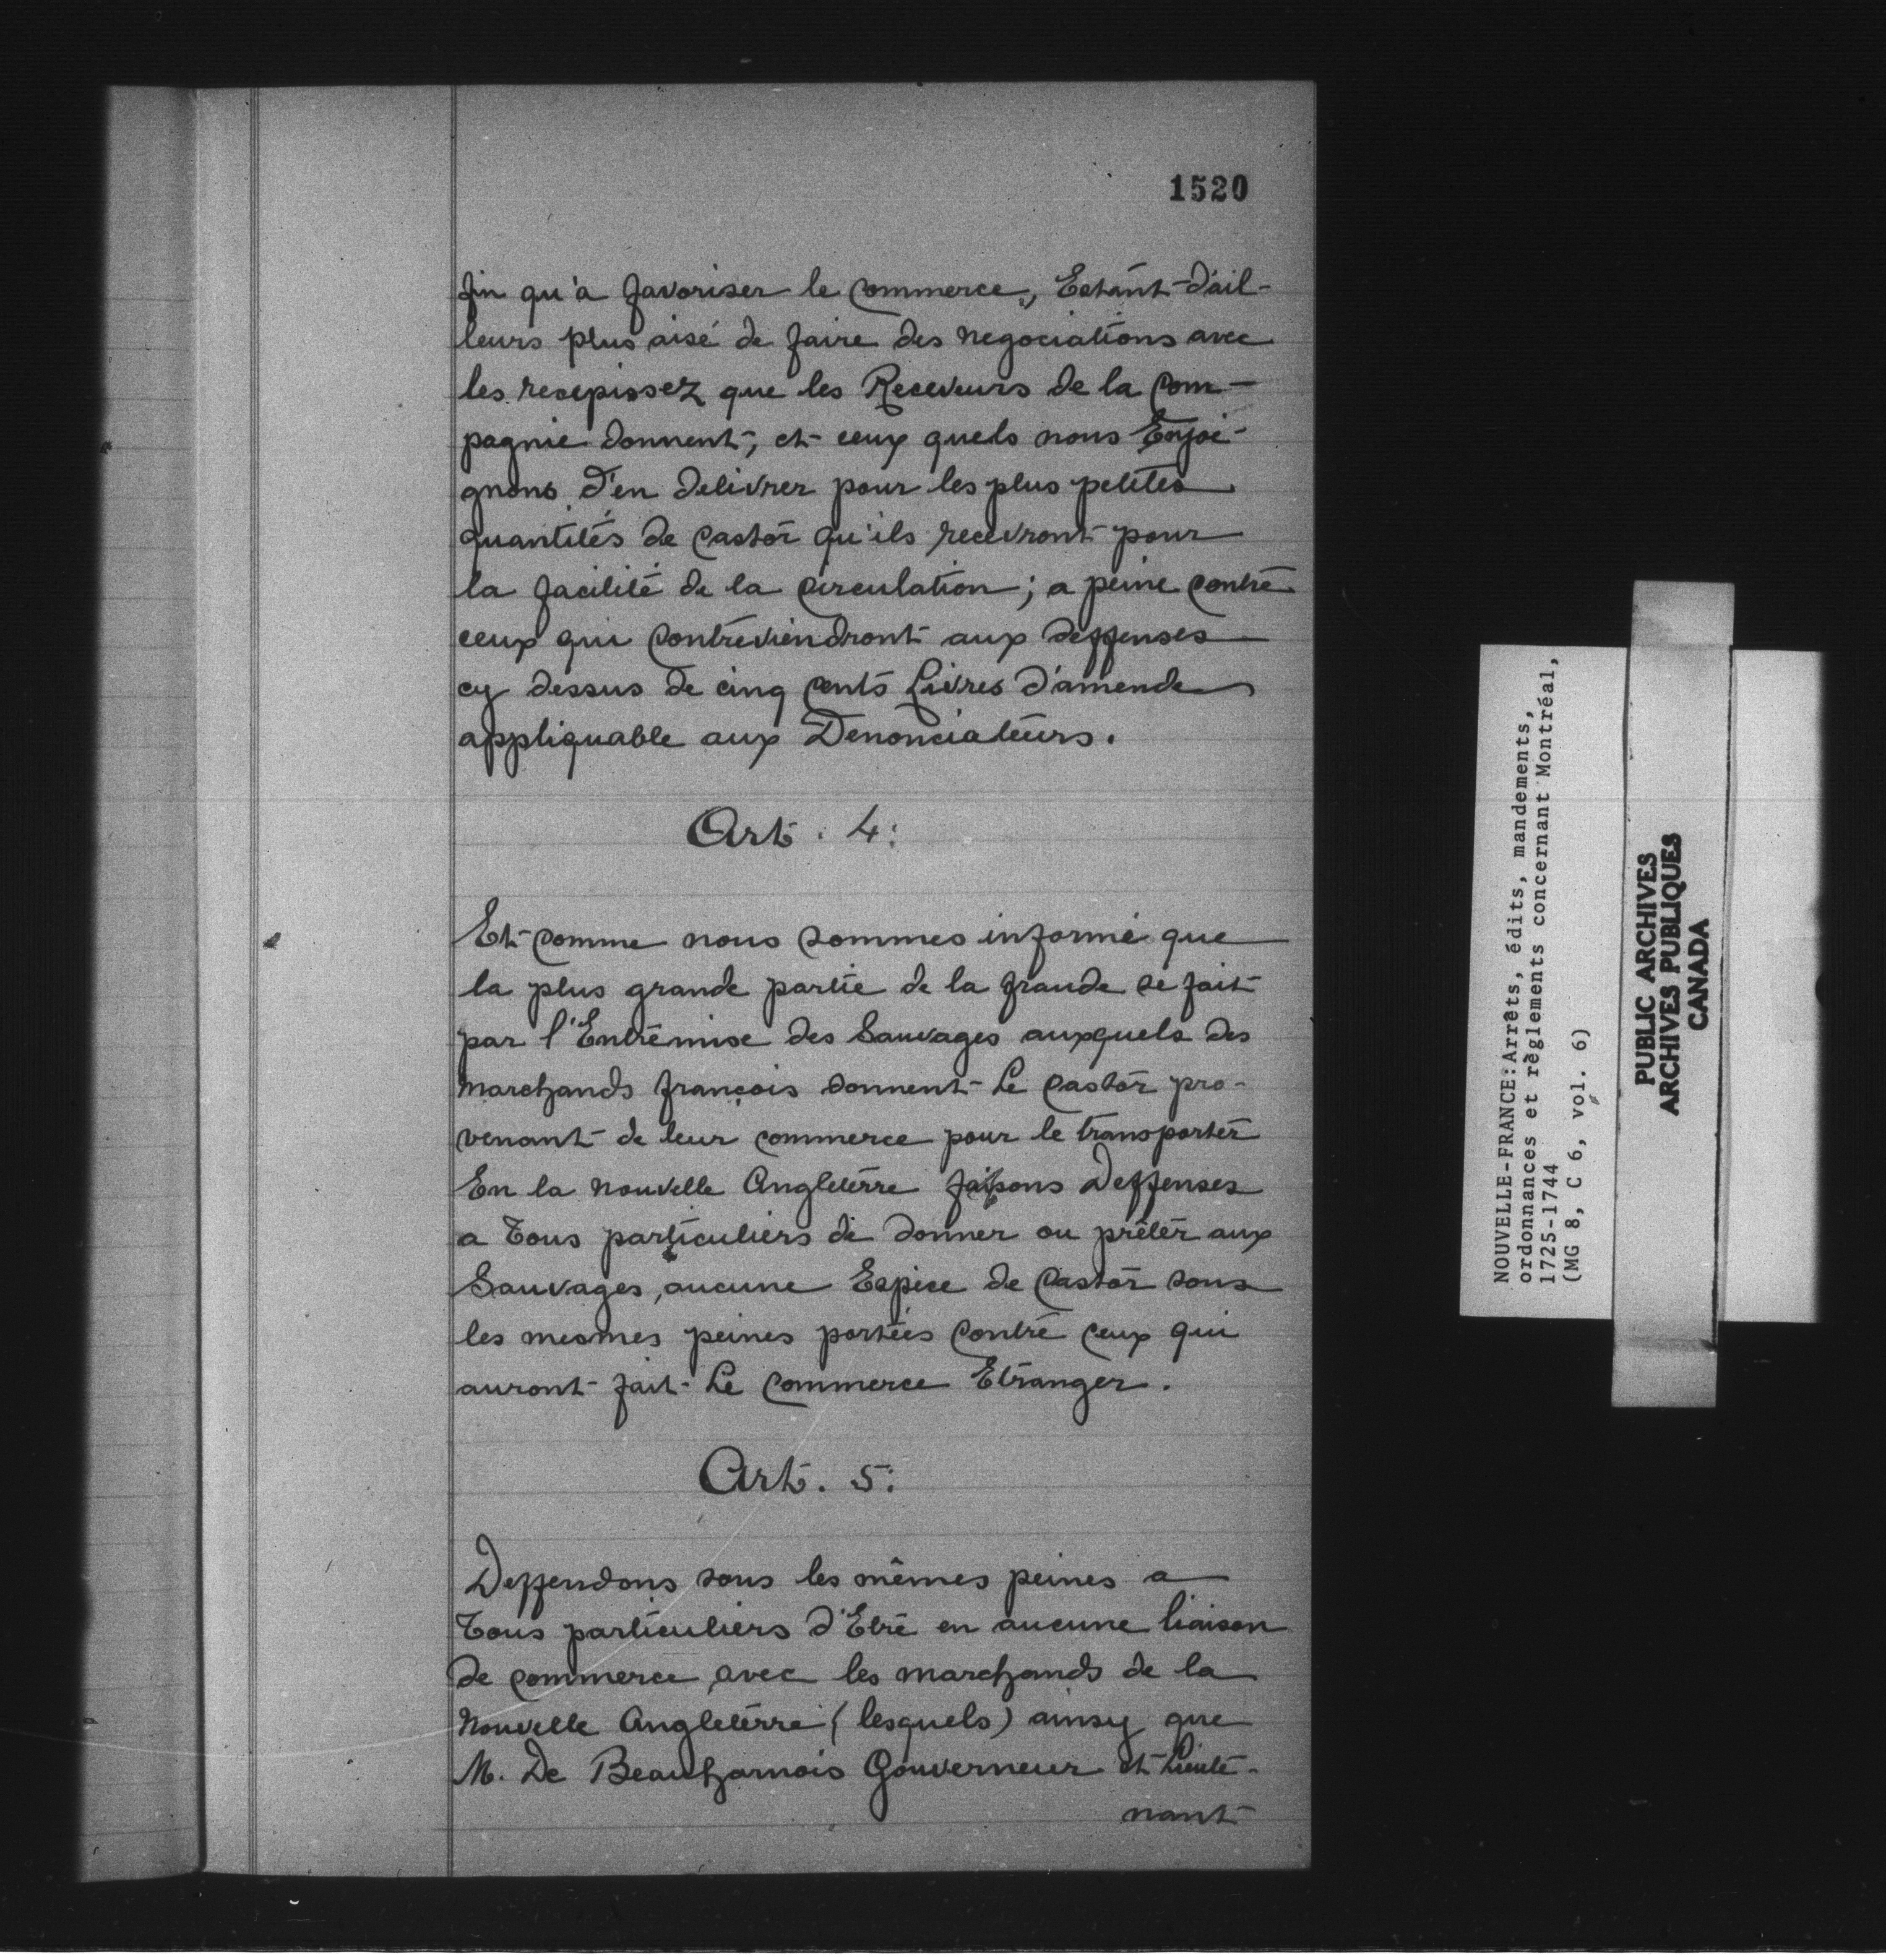 1520
fin qu'à favoriser le Commerce, Estant d'ail-
leurs plus aisé de faire des negociations avec
les recepissez que les Receveurs de la Com-
pagnie donnent, et ceux quels nous Enjoi-
gnons d'en delivrer pour les plus petites
quantités de Castor qu'ils recevront pour
la facilité de la Circulation; a peine Contre
ceux qui Contreviendront aux deffenses
cy dessus de cinq Cents Livres d'amende
appliquable aux Denonciateurs.
Art. 4:
Et Comme nous sommes informé que
la plus grande partie de la fraude se fait
par l'Entremise des Sauvages auxquels des
marchands françois donnent Le Castor pro-
venant de leur commerce pour le transporter
En la nouvelle Angleterre faisons Deffenses
a Tous particuliers de donner ou prêter aux
Sauvages, aucune Espece de Castor sous
les mesmes peines portées Contre Ceux qui
auront fait Le Commerce Etranger.
Art. 5:
Deffendons sous les mêmes peines a
Tous particuliers d'Etre en aucune liaison
de Commerce avec les marchands de la
Nouvelle Angleterre (lesquels) ainsy que
M. De Beauharnois Gouverneur et Lieute-
nant
NOUVELLE-FRANCE: Arrêts, édits, mandements,
ordonnances et règlements concernant Montréal,
1725-1744
(MG 8, C 6, vol. 6)
PUBLIC ARCHIVES
ARCHIVES PUBLIQUES
CANADA